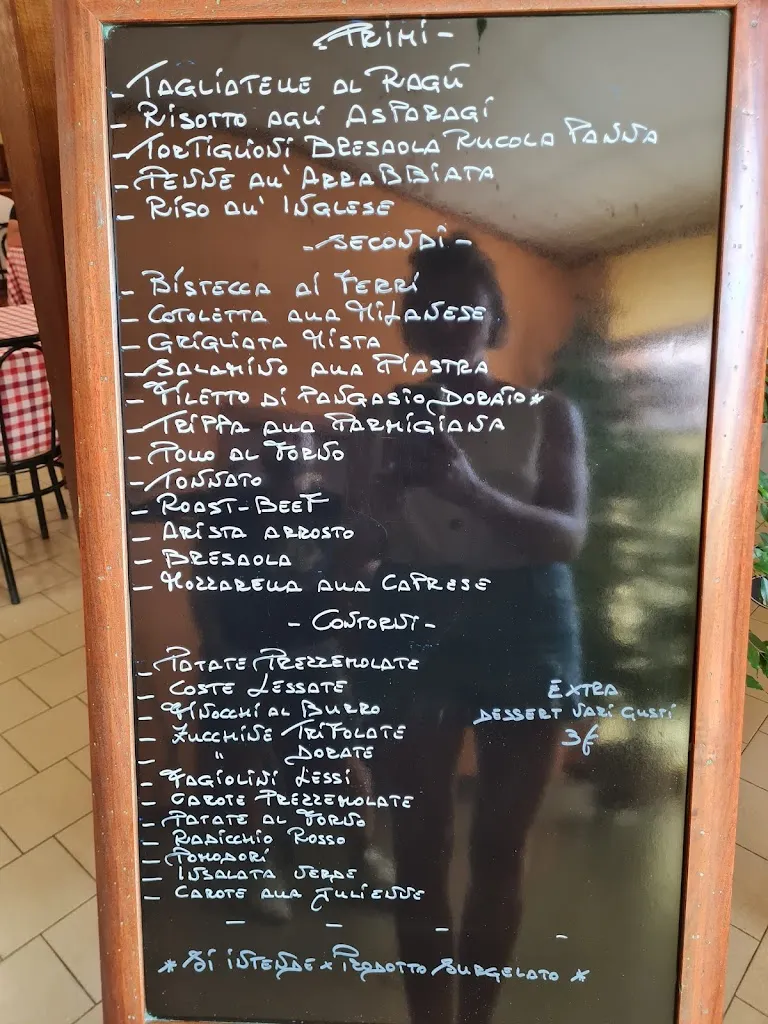 - PRIMI -
- TAGLIATELLE AL RAGÚ
- RISOTTO AGLI ASPARAGI
- TORTIGLIONI BRESAOLA RUCOLA PANNA
- PENNE ALL' ARRABBIATA
- RISO ALL' INGLESE
- SECONDI -
- BISTECCA AI FERRI
- COTOLETTA ALLA MILANESE
- GRIGLIATA MISTA
- SALAMINO ALLA PIASTRA
- FILETTO DI PANGASIO DORATO *
- TRIPPA ALLA PARMIGIANA
- POLLO AL FORNO
- TONNATO
- ROAST-BEEF
- ARISTA ARROSTO
- BRESAOLA
- MOZZARELLA ALLA CAPRESE
- CONTORNI -
- PATATE PREZZEMOLATE
- COSTE LESSATE
- FINOCCHI AL BURRO
- ZUCCHINE TRIFOLATE
- " DORATE
- FAGIOLINI LESSI
- CAROTE PREZZEMOLATE
- PATATE AL FORNO
- RADICCHIO ROSSO
- POMODORI
- INSALATA VERDE
- CAROTE ALLA JULIENNE
EXTRA
DESSERT VARI GUSTI
3€
- - - -
* SI INTENDE x PRODOTTO SURGELATO *